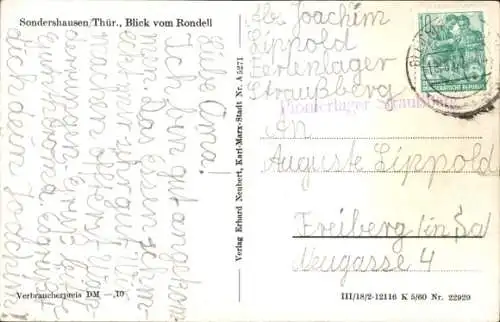 Sondershausen/Thür., Blick vom Rondell
Liebe Oma!
Ich bin gut angekom-
men. Das essen schm-
eckt sehr gut. Wir
machen öfters
Es grüßt
dich dein Joachim
Verbraucherpreis DM —,10
Verlag Erhard Neubert, Karl-Marx-Stadt Nr. A 5271
Abs. Joachim
Lippold
Ferienlager
Straußberg
Pionierlager Straußberg
10
DEUTSCHE DEMOKRATISCHE REPUBLIK
An
Auguste Lippold
Freiberg (in Sa
Neugasse 4
III/18/2-12116 K 5/60 Nr. 22929